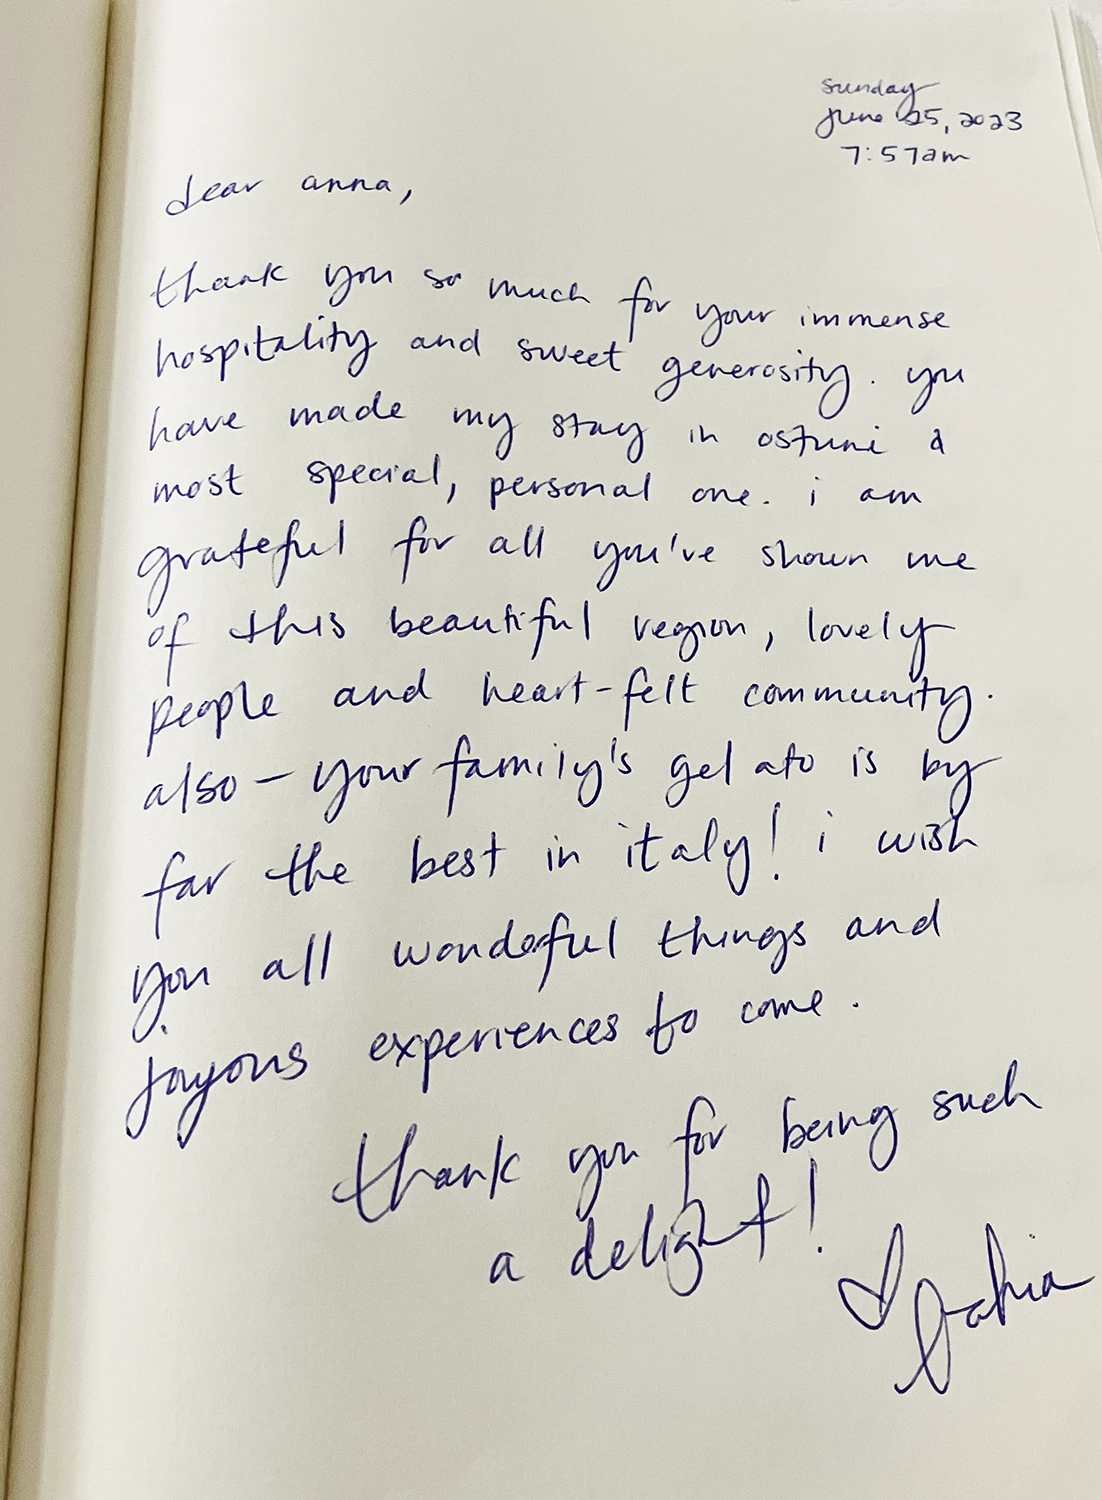 sunday
june 25, 2023
7:57am
dear anna,
thank you so much for your immense
hospitality and sweet generosity. you
have made my stay in ostuni a
most special, personal one. i am
grateful for all you've shown me
of this beautiful region, lovely
people and heart-felt community.
also – your family's gelato is by
far the best in italy! i wish
you all wonderful things and
joyous experiences to come.
thank you for being such
a delight!
♡